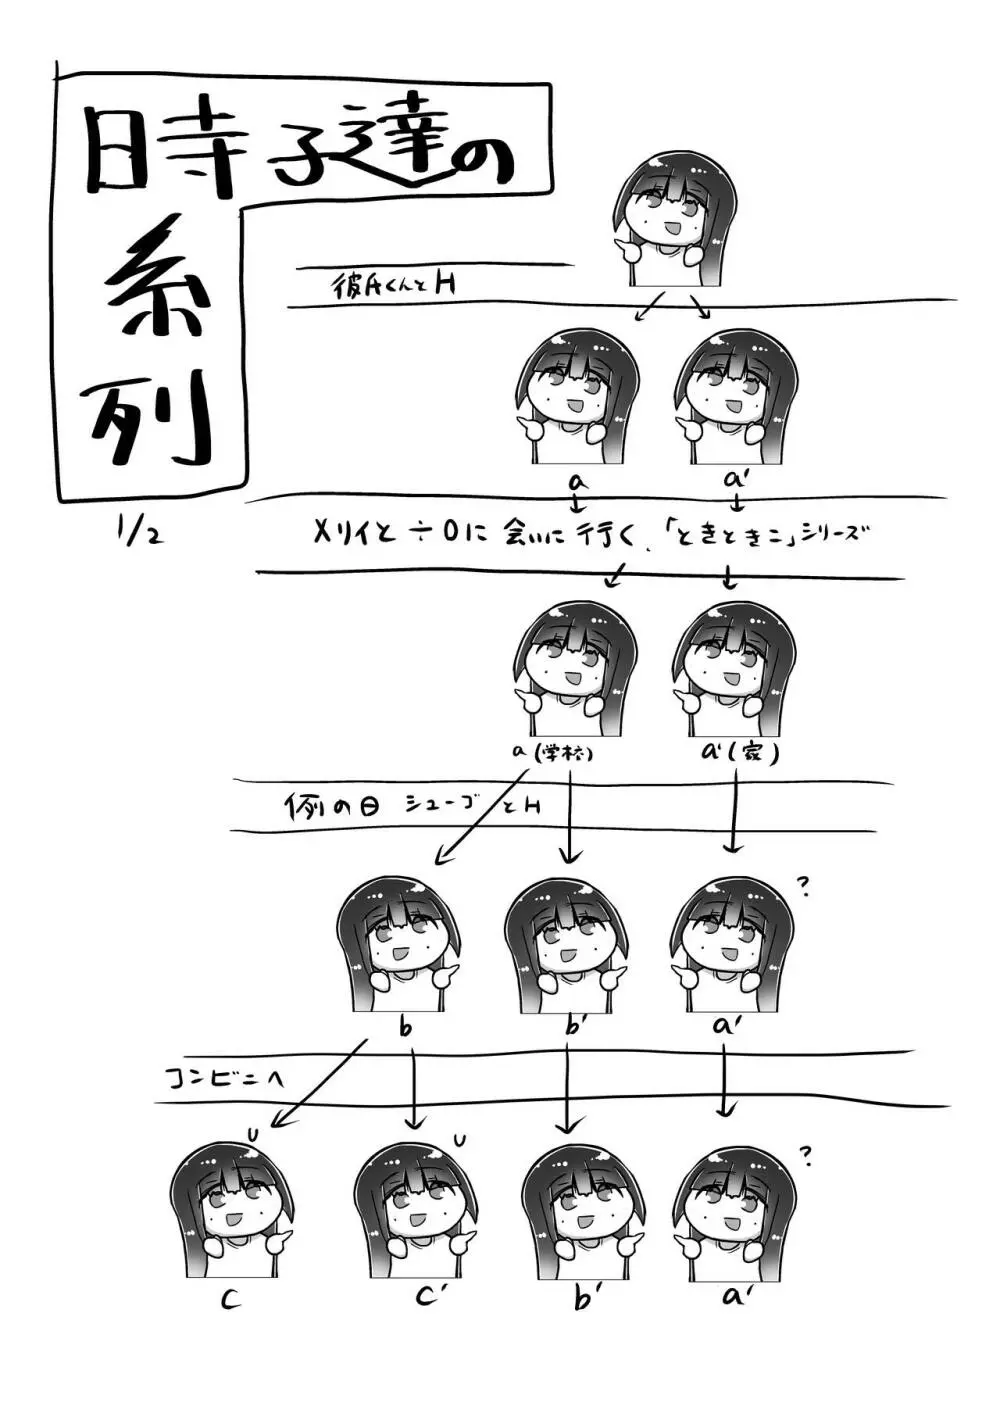 時子達の
系
列
1/2
彼氏くんとH
a
a'
メリイと÷0に会いに行く、「ときときこ」シリーズ
a(学校)
a'(家)
例の日 シューゴとH
?
b
b'
a'
コンビニへ
?
c
c'
b'
a'